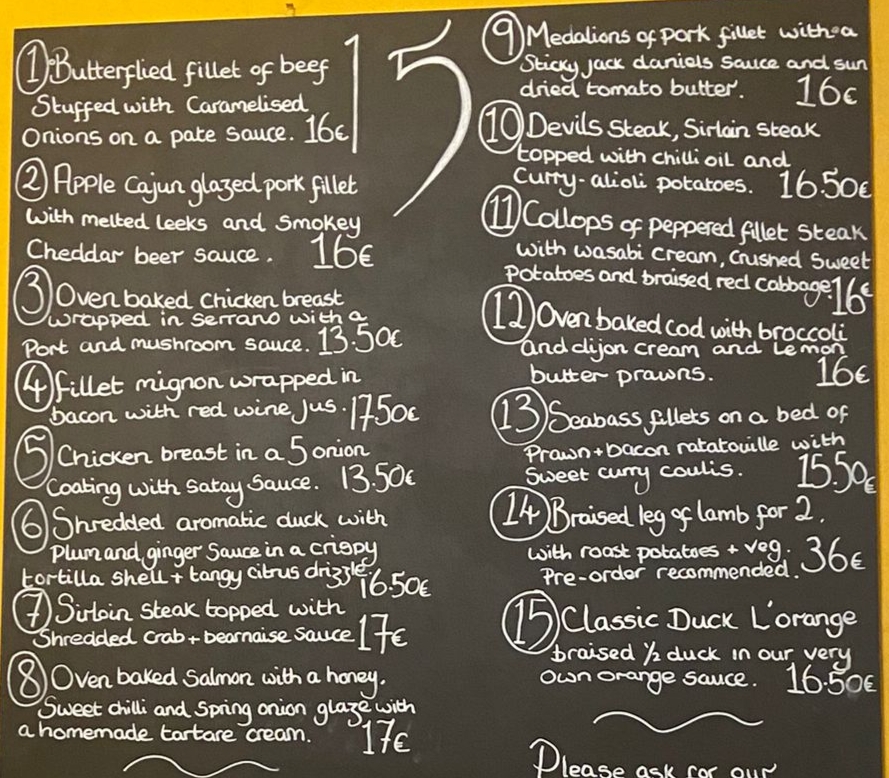 15
① Butterflied fillet of beef
Stuffed with Caramelised
Onions on a pate sauce. 16€
② Apple Cajun glazed pork fillet
With melted leeks and Smokey
Cheddar beer sauce. 16€
③ Oven baked Chicken breast
wrapped in serrano with a
Port and mushroom sauce. 13.50€
④ fillet mignon wrapped in
bacon with red wine Jus. 17.50€
⑤ Chicken breast in a 5 onion
Coating with Satay Sauce. 13.50€
⑥ Shredded aromatic duck with
Plum and ginger Sauce in a crispy
tortilla shell + tangy citrus drizzle. 16.50€
⑦ Sirloin Steak topped with
Shredded Crab + bearnaise Sauce 17€
⑧ Oven baked Salmon with a honey.
Sweet chilli and Spring onion glaze with
a homemade tartare cream. 17€
⑨ Medalions of pork fillet with a
Sticky jack daniels Sauce and sun
dried tomato butter. 16€
⑩ Devils Steak, Sirlain steak
topped with chilli oil and
Curry-alioli potatoes. 16.50€
⑪ Collops of peppered fillet Steak
with wasabi cream, crushed Sweet
potatoes and braised red cabbage 16€
⑫ Oven baked Cod with broccoli
and dijon cream and Lemon
butter prawns. 16€
⑬ Seabass fillets on a bed of
Prawn + bacon ratatouille with
Sweet curry coulis. 15.50€
⑭ Braised leg of lamb for 2.
with roast potatoes + veg. 36€
Pre-order recommended.
⑮ Classic Duck L'orange
braised ½ duck in our very
own orange sauce. 16.50€
Please ask for our